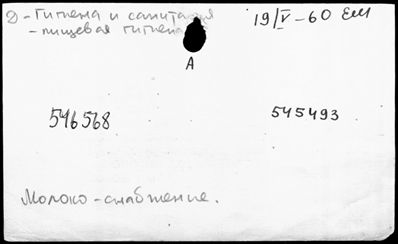 2 - Гигиена и санитария 19/V-60 ЕМ
- пищевая гигиена
А
546568 545493
Молоко-снабжение.